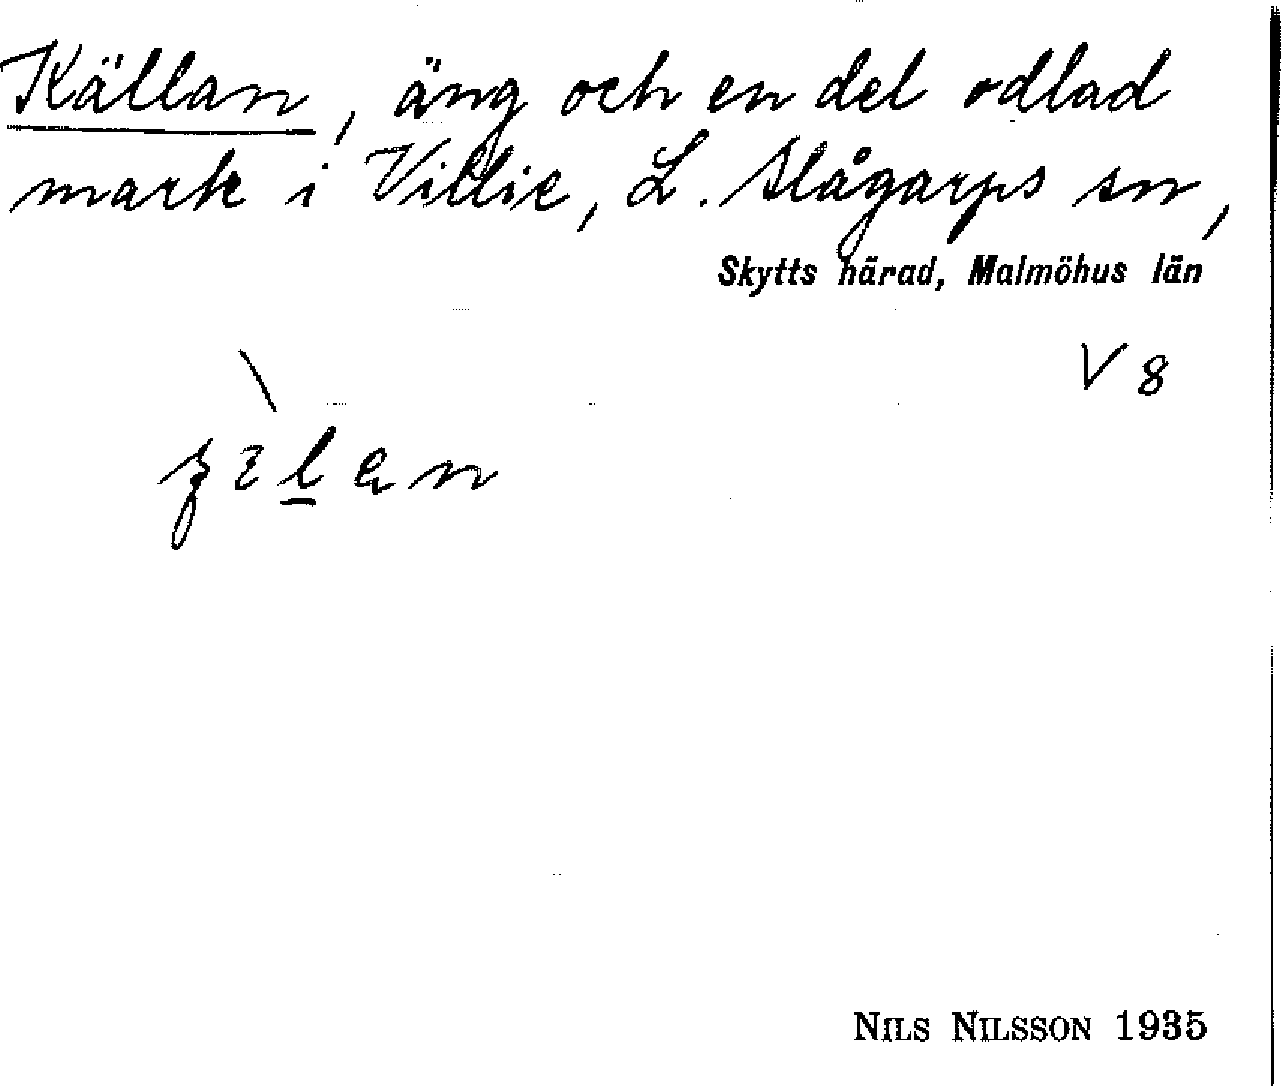 Källan, äng och en del odlad
mark i Villie, L. Slågarps sn,
Skytts härad, Malmöhus län
V 8
NILS NILSSON 1935